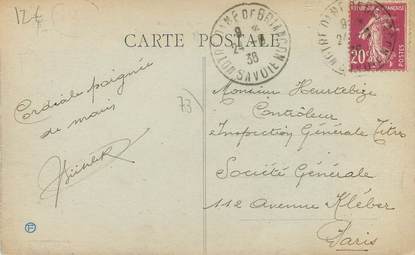 12€
CARTE POSTALE
NOTRE DAME DE BRIANÇON
38
SAVOIE
RÉPUBLIQUE FRANÇAISE
20c
73)
Cordiale poignée
de main
Monsieur Heurtebize
Contrôleur
Inspection Générale Titres
Société Générale
112 Avenue Kléber
Paris